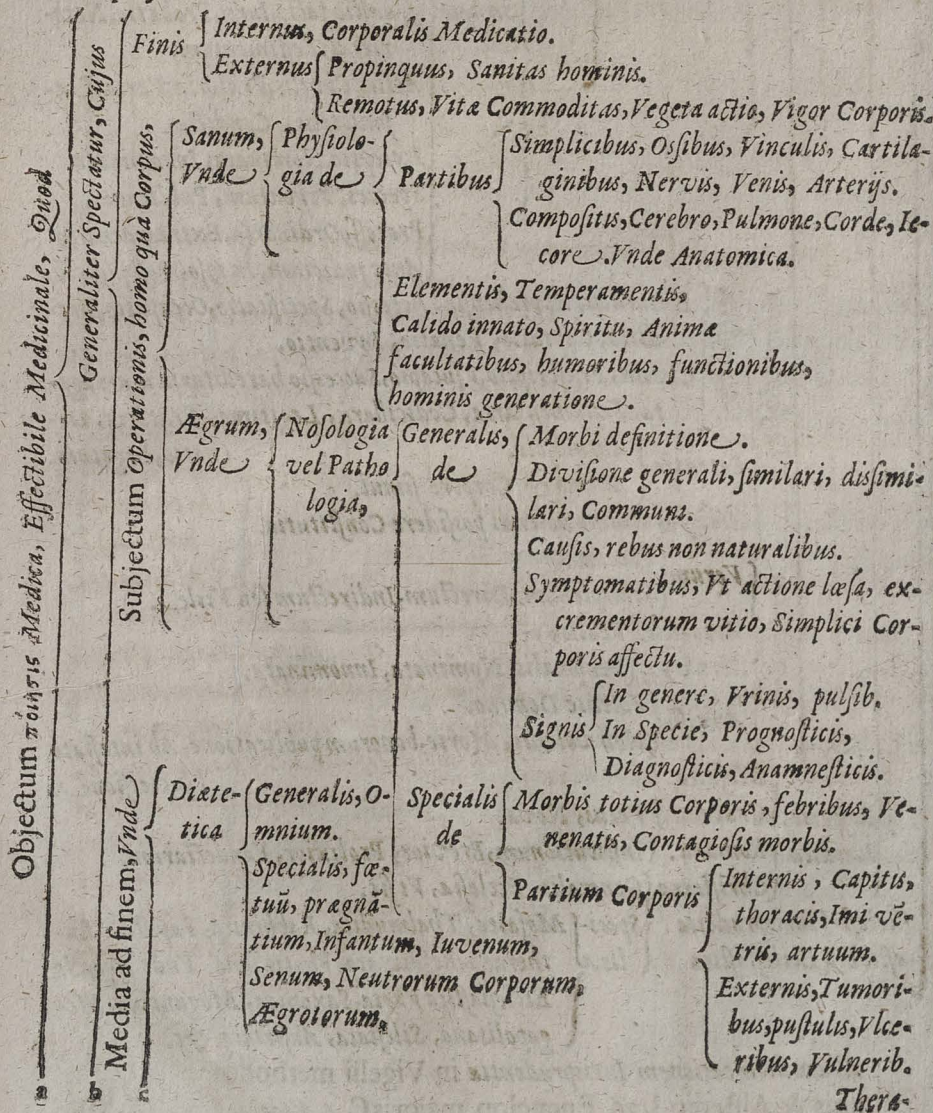 Objectum ποίησις Medica, Effectibile Medicinale, Quod
Generaliter Spectatur, Cujus
Finis
Internus, Corporalis Medicatio.
Externus Propinquus, Sanitas hominis.
Remotus, Vitæ Commoditas, Vegeta actio, Vigor Corporis.
Subjectum Operationis, homo quà Corpus,
Sanum,
Vnde
Physiolo-
gia de
Partibus
Simplicibus, Ossibus, Vinculis, Cartila-
ginibus, Nervis, Venis, Arterijs.
Compositis, Cerebro, Pulmone, Corde, Ie-
core. Vnde Anatomica.
Elementis, Temperamentis,
Calido innato, Spiritu, Animæ
facultatibus, humoribus, functionibus,
hominis generatione.
Ægrum,
Vnde
Nosologia
vel Patho
logia,
Generalis,
de
Morbi definitione.
Divisione generali, similari, dissimi-
lari, Communi.
Causis, rebus non naturalibus.
Symptomatibus, Vt actione læsa, ex-
crementorum vitio, Simplici Cor-
poris affectu.
Signis
In genere, Vrinis, pulsib.
In Specie, Prognosticis,
Diagnosticis, Anamnesticis.
Specialis
de
Morbis totius Corporis, febribus, Ve-
nenatis, Contagiosis morbis.
Partium Corporis
Internis, Capitis,
thoracis, Imi vē-
tris, artuum.
Externis, Tumori-
bus, pustulis, Vlce-
ribus, Vulnerib.
Media ad finem, Vnde
Diæte-
tica
Generalis, O-
mnium.
Specialis, fœ-
tuū, prægnā-
tium, Infantum, Iuvenum,
Senum, Neutrorum Corporum,
Ægrotorum,
a
b
n
Thera-